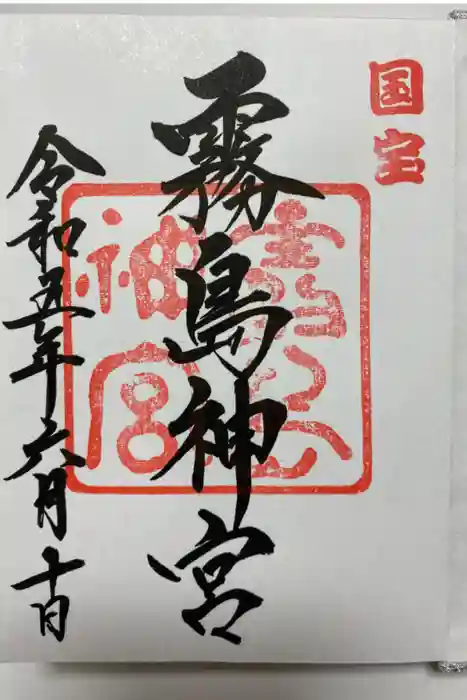 国宝
霧島神宮
令和五年六月十日